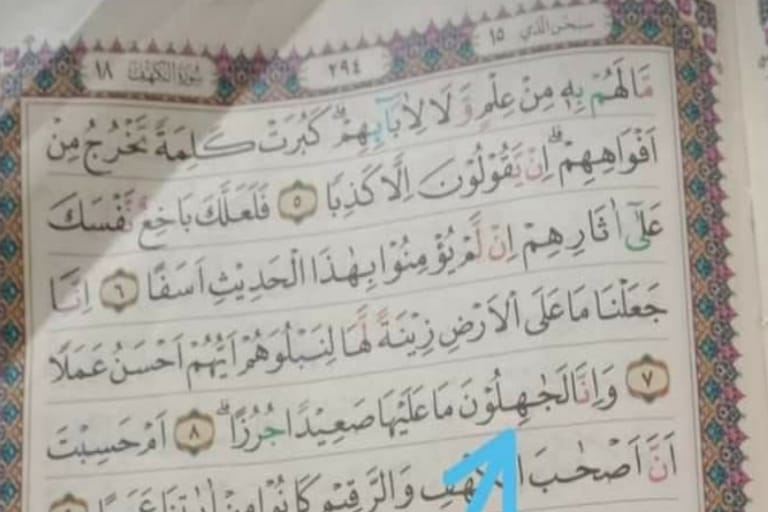 سبحن الذي ١٥ ٢٩٤ سورة الكهف ١٨
مَّا لَهُمْ بِهٖ مِنْ عِلْمٍ وَّلَا لِاٰبَاۤىِٕهِمْۗ كَبُرَتْ كَلِمَةً تَخْرُجُ مِنْ
اَفْوَاهِهِمْۗ اِنْ يَّقُوْلُوْنَ اِلَّا كَذِبًا ٥ فَلَعَلَّكَ بَاخِعٌ نَّفْسَكَ
عَلٰٓى اٰثَارِهِمْ اِنْ لَّمْ يُؤْمِنُوْا بِهٰذَا الْحَدِيْثِ اَسَفًا ٦ اِنَّا
جَعَلْنَا مَا عَلَى الْاَرْضِ زِيْنَةً لَّهَا لِنَبْلُوَهُمْ اَيُّهُمْ اَحْسَنُ عَمَلًا
٧ وَاِنَّا لَجٰهِلُوْنَ مَا عَلَيْهَا صَعِيْدًا جُرُزًاۗ ٨ اَمْ حَسِبْتَ
اَنَّ اَصْحٰبَ الْكَهْفِ وَالرَّقِيْمِ كَانُوْا مِنْ اٰيٰتِنَا عَجَبًا